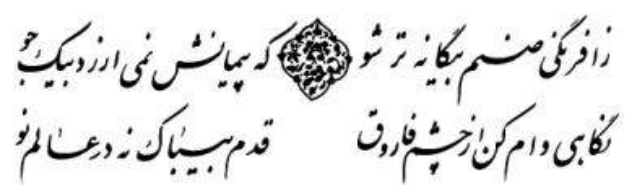 ز افرنگی صنم بیگانه تر شو که پیمانش نمی ارزد بیک جو
نگاهی وام کن از چشم فاروق قدم بیباک نه در عالم نو